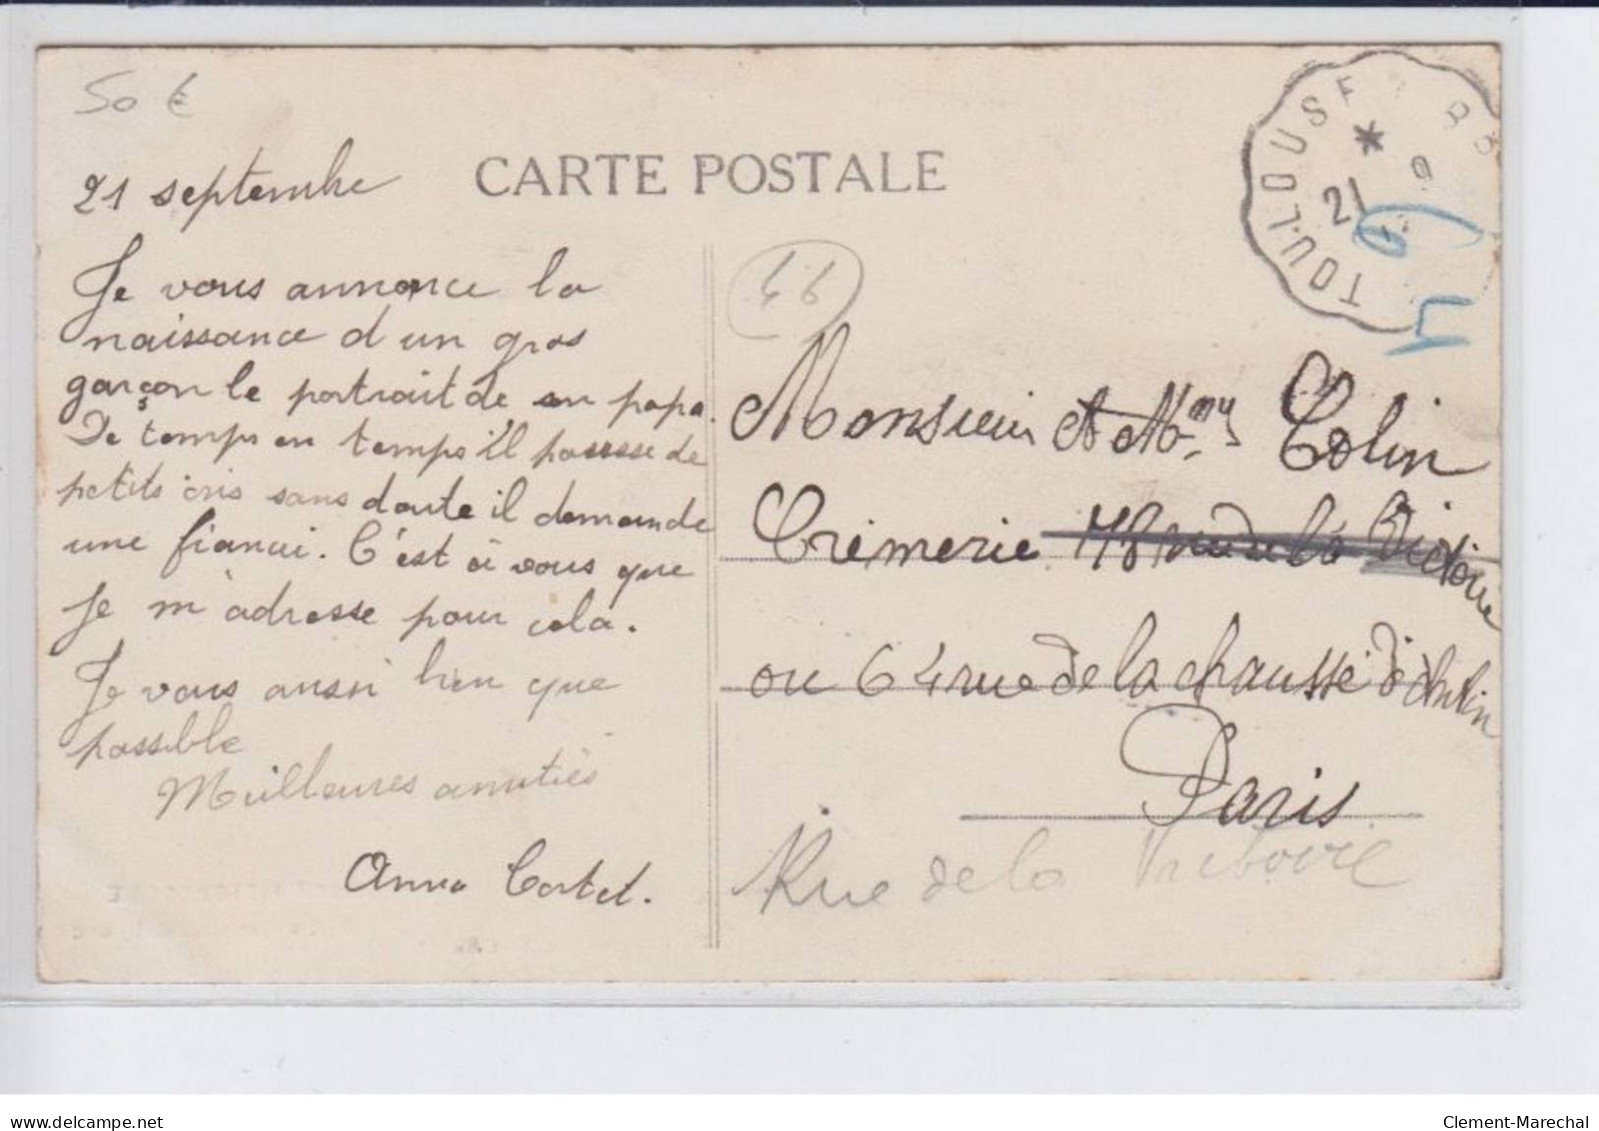 50 €
21 septembre
CARTE POSTALE
TOULOUSE
21 9
Je vous annonce la
naissance d un gros
garçon le portrait de son papa.
De temps en temps il pousse de
petits cris sans doute il demande
une fiancé. C'est à vous que
je m'adresse pour cela.
Je vous aussi bien que
possible
Meilleures amitiés
Anna Cortet.
46
Monsieur et Mme Colin
Crèmerie 78 rue de la Victoire
ou 64 rue de la chaussé d'Antin
Paris
Rue de la
delcampe.net
Clement-Marechal